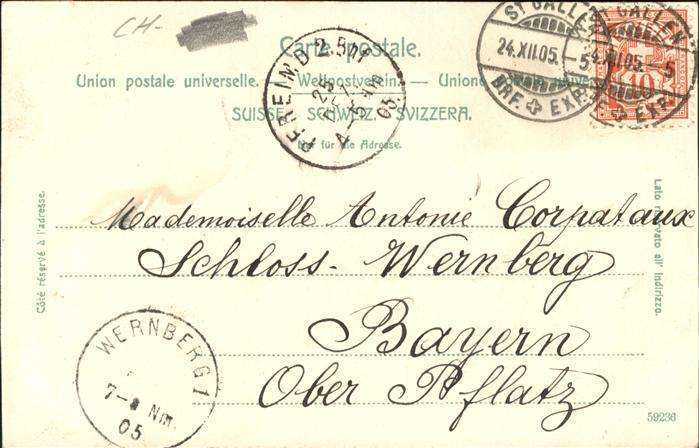 CH-
Carte postale.
Union postale universelle. — Weltpostverein — Unione postale
SUISSE. SCHWEIZ. SVIZZERA.
Nur für die Adresse.
ST GALLEN
24.XII.05. -5
BRF. EXP.
ST GALLEN
24.XII.05. -5
BRF. EXP.
10
25
4-5 Nm
05
Mademoiselle Antonie Corpataux
Schloss-Wernberg
Bayern
Ober Pflatz
Côté réservé à l'adresse.
Lato riservato all' indirizzo.
WERNBERG 1
7-8 Nm.
05
59236